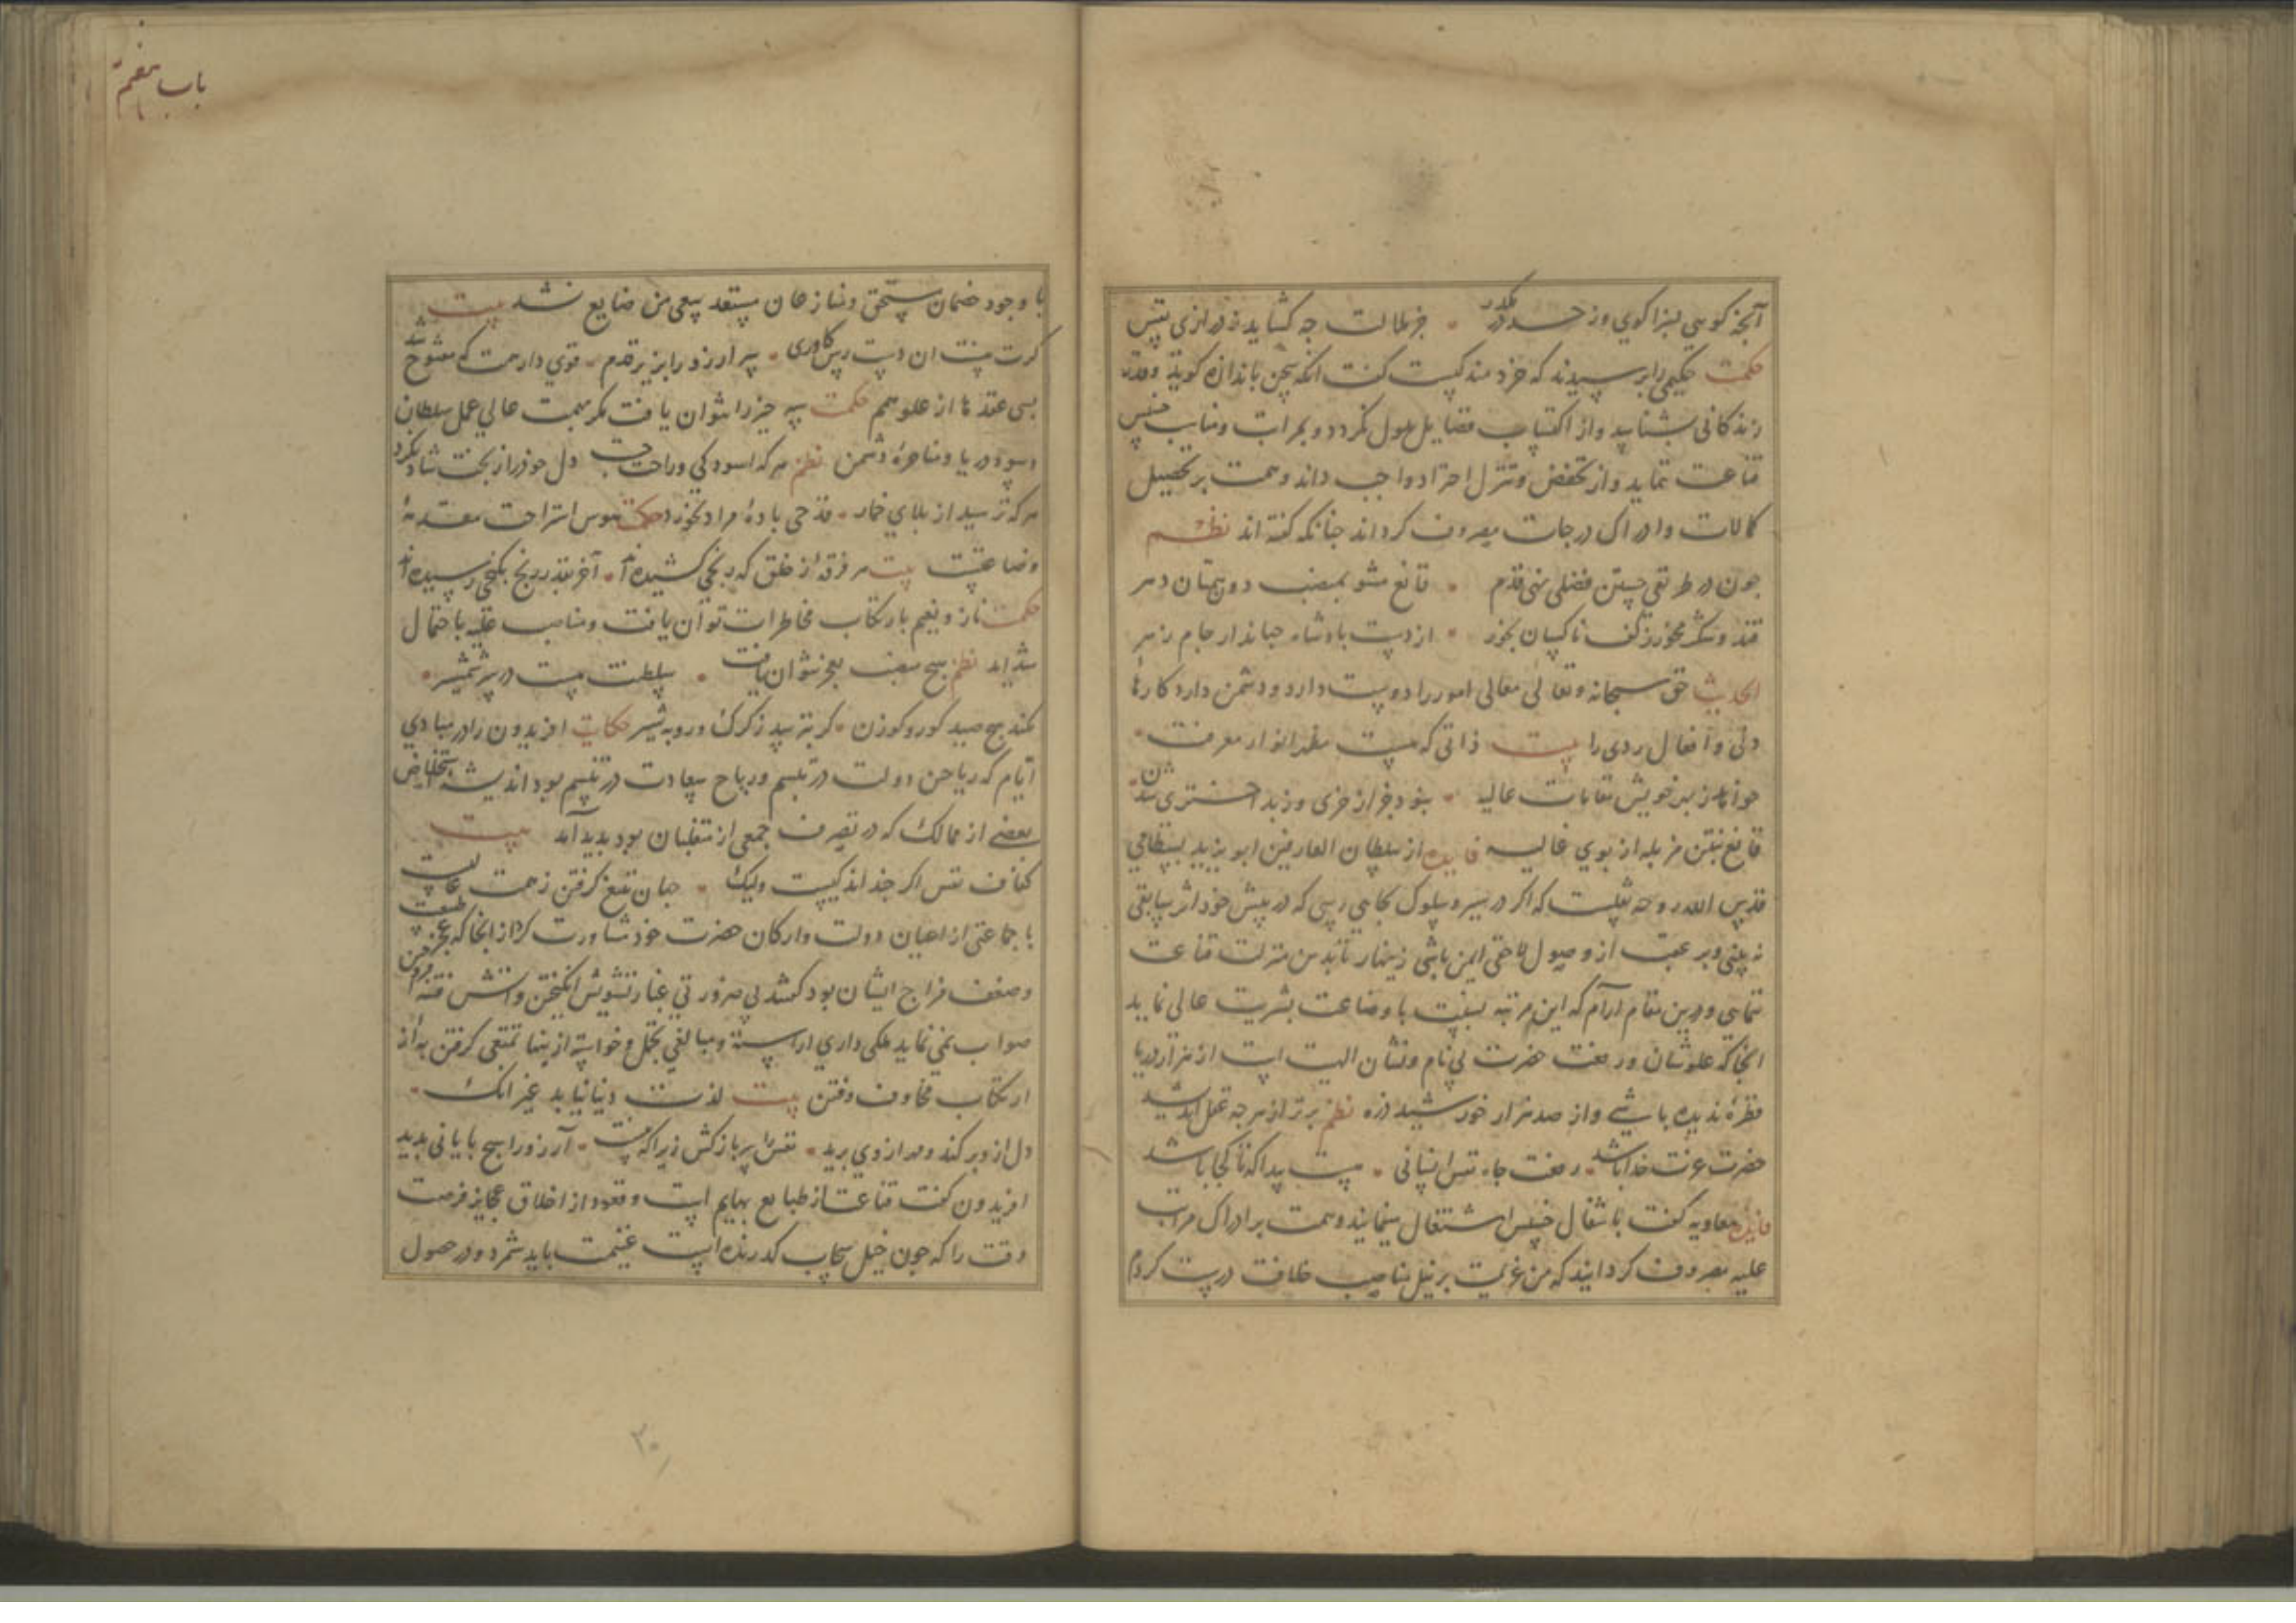 آنچه کویی بسزا کوی وز حد در مکذر • جز ملالت چه کشاید ز درازی نفس
حکمت حکیمی را پرسیدند که خردمند کیست کفت انکه سخن باندازه کوید و قدر
زندکانی بشناسد و از اکتساب فضایل ملول نکردد و بمراتب و مناصب خسیس
قناعت ننماید و از تخفض و تنزل احتراز واجب داند و همت بر تحصیل
کمالات و ادراک درجات مصروف کرداند چنانکه کفته اند نظم
چون در طریق جستن فضلی نهی قدم • قانع مشو بمنصب دون همتان دهر
قند و شکر مخور ز کف ناکسان بخور • از دست پادشاه جهاندار جام زهر
الحدیث حق سبحانه و تعالی معالی امور را دوست دارد و دشمن دارد کارهاء
دنی و افعال ردی را بیت ذاتی که هست مظهر انوار معرفت •
خواهد ز بهر خویش مقامات عالیه • بنود بجز از خری و ز بد اختری شدن
قانع بنتن مزبله از بوی غالیه فایده از سلطان العارفین ابو یزید بسطامی
قدس الله روحه نقلست که اکر در سیر و سلوک بجایی رسی که در پیش خود اثر سابقی
نه بینی و بر عقب از وصول لاحقی ایمن باشی زینهار تا بدین منزلت قناعت
ننمایی و درین مقام ارام که این مرتبه بنسبت با وضاعت بشریت عالی نماید
انجا که علو شان و رفعت حضرت بی نام و نشان الهیت است از هزار دریا
قطرهٔ ندیده باشی و از صد هزار خورشید ذره نظم برتر از هرچه عقل اندیشید
حضرت عزت خدا باشد • رفعت جاه نفس انسانی • هست پیدا که تا کجا باشد
فایده معاویه کفت باشغال خسیس اشتغال منمایید و همت بر ادراک مراتب
علیه مصروف کردانید که من عزیمت بر نیل مناصب خلافت درست کردم
باب هفتم
با وجود خصمان مستحق و منازعان مستعد سعی من ضایع نشد بیت
کرت هست ان دست رس کاوری • سر ارزو را بزیر قدم • قوی دار همت که مفتوح شد
بسی عقدها از علو همم حکمت سه چیز را نتوان یافت مکر بهمت عالی عمل سلطان
و سود دریا و مناجزهٔ دشمن نظم هر که اسودکی و راحت جست دل خود را ز بخت شاد نکرد
هر که ترسید از بلای خمار • قدحی باده مراد نخورد حکمت هوس استراحت مقدمهٔ
وضاعتست بیت هر فرقهٔ از خلق که رنجی کشیده اند • آخر بقدر رنج بکنجی رسیده اند
حکمت ناز و نعیم بارتکاب مخاطرات توان یافت و مناصب علیه باحتمال
شداید نظم هیچ منصب بعجز نتوان یافت • سلطنت هست در سر شمشیر •
نکند هیچ صید کور و کوزن • کر بترسد ز کرک و روبه شیر حکایت افریدون را در مبادی
ایام که ریاحین دولت در تبسم و ریاح سعادت در تنسم بود اندیشه استخلاص
بعضی از ممالک که در تصرف جمعی از متغلبان بود بدید آمد بیت
کفاف نفس اکر چند اندکیست ولیک • جهان بتیغ کرفتن ز همت عالیست
با جماعتی از اعیان دولت و ارکان حضرت خود مشاورت کرد از انجا که عجز طبیعت
و ضعف مزاج ایشان بود کفتند بی ضرورتی غبار تشویش انکیختن و اتش فتنه افروختن
صواب نمی نماید ملکی داری اراسته و مبالغی تجمل و خواسته از ینها تمتعی کرفتن به از
ارتکاب مخاوف و فتن بیت لذت دنیا نیابد غیر انک •
دل از وبر کند و مهر از وی برید • نفس را سر باز کش زیرا که نیست • آرزو را هیچ پایانی بدید
افریدون کفت قناعت از طبایع بهایم است و قعود از اخلاق عجایز فرصت
وقت را که چون خیل سحاب کذرنده است غنیمت باید شمرد و در حصول
۲۰